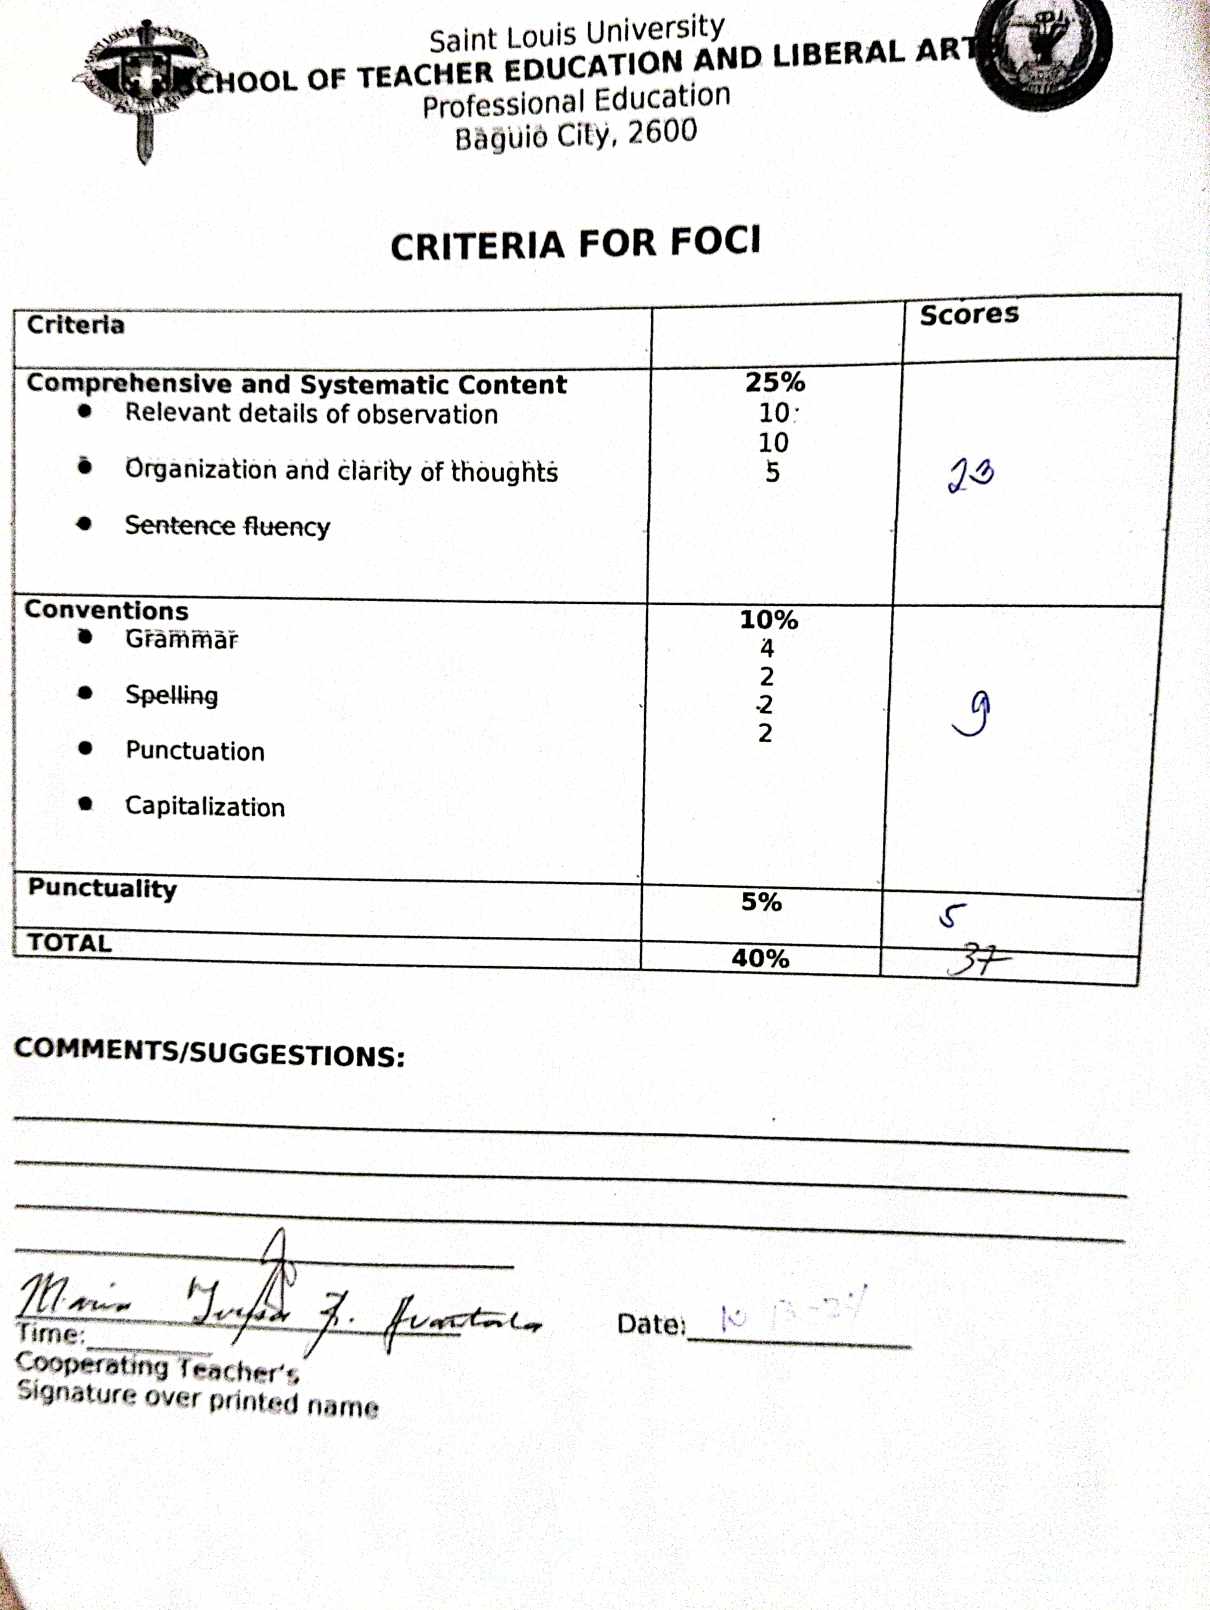 Saint Louis University
SCHOOL OF TEACHER EDUCATION AND LIBERAL ART
Professional Education
Baguio City, 2600
CRITERIA FOR FOCI
Criteria Scores
Comprehensive and Systematic Content 25%
● Relevant details of observation 10
10
● Organization and clarity of thoughts 5
23
● Sentence fluency
Conventions 10%
● Grammar 4
2
● Spelling 2
9
2
● Punctuation
● Capitalization
Punctuality 5% 5
TOTAL 40% 37
COMMENTS/SUGGESTIONS:
Maria F.
Time: Date: 10
Cooperating Teacher's
Signature over printed name